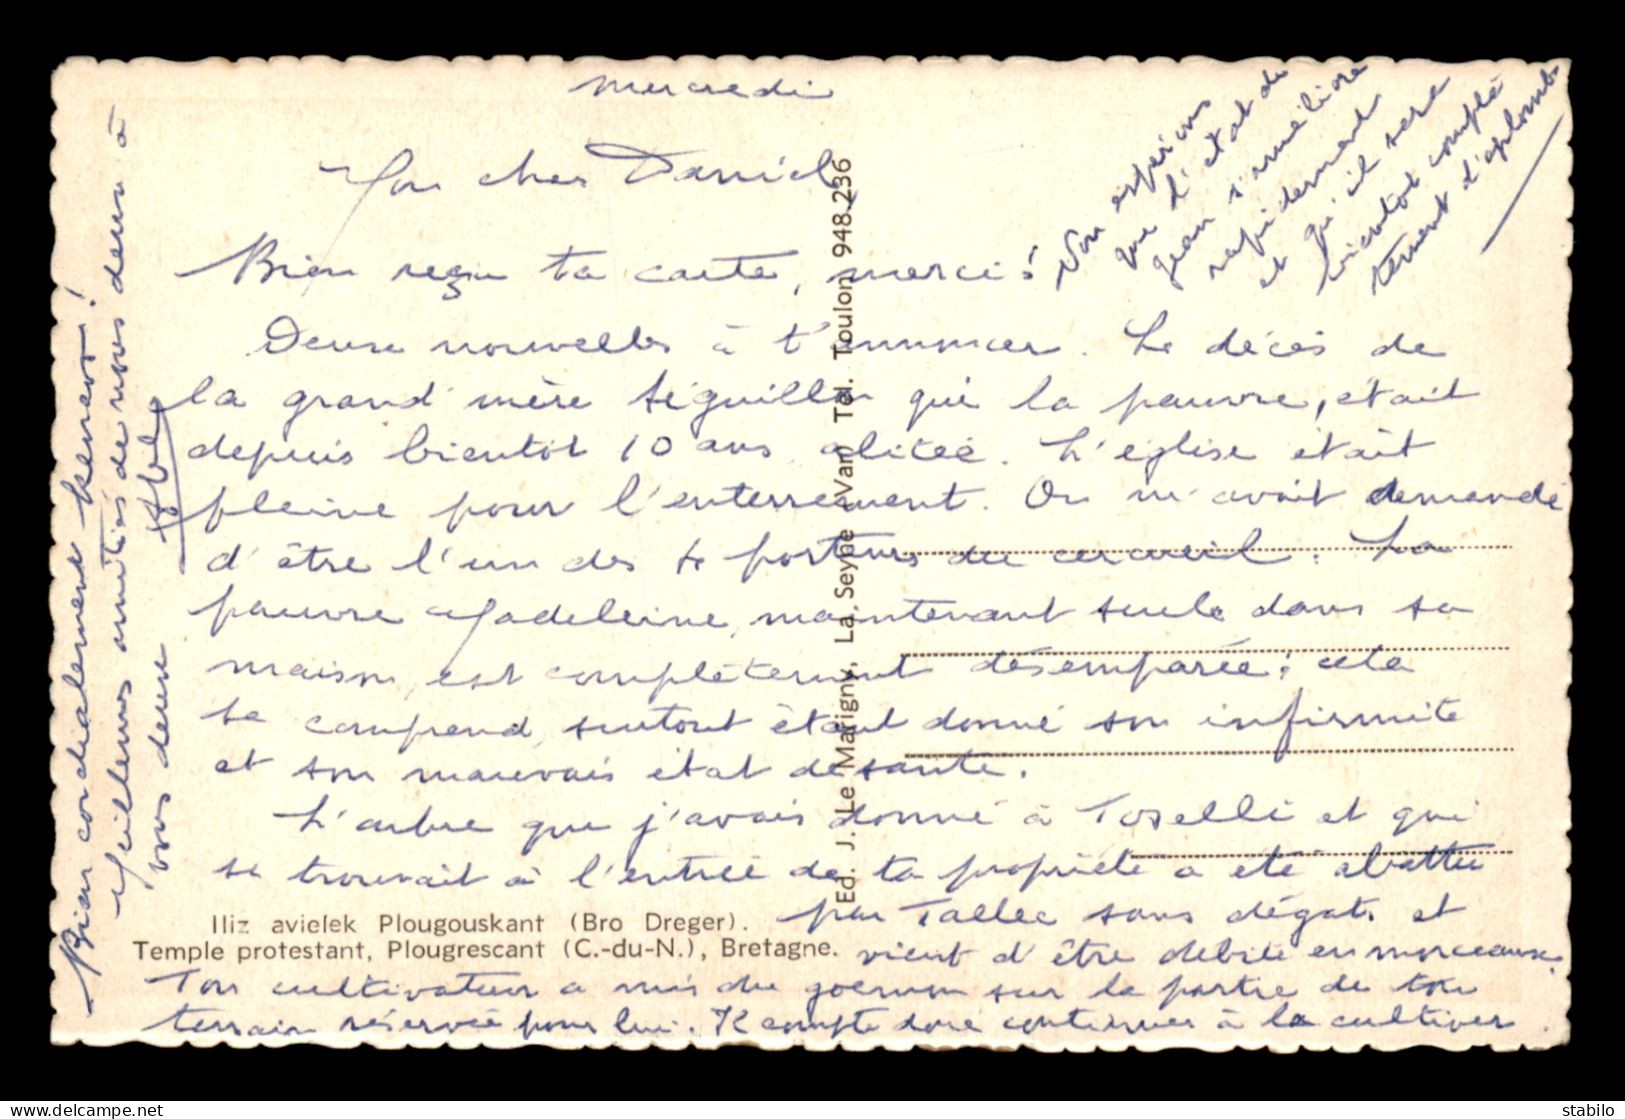 mercredi
Mon cher Daniel,
Bien reçu ta carte, merci !
Deux nouvelles à t'annoncer. Le décès de
la grand'mère qui la pauvre, était
depuis bientôt 10 ans alitée. L'église était
pleine pour l'enterrement. On m'avait demandé
d'être l'un des 4 porteurs du cercueil. La
pauvre Madeleine, maintenant seule dans sa
maison, est complètement désemparée : cela
se comprend, surtout étant donné son infirmité
et son mauvais état de santé.
L'arbre que j'avais donné à Toselli et qui
se trouvait à l'entrée de ta propriété a été abattu
par Tallec sans dégats et
vient d'être débité en morceaux.
Ton cultivateur a mis du goemon sur la partie de ton
terrain réservée pour lui. Il compte donc continuer à la cultiver.
Nous espérons
que l'état de
Jean s'améliore
rapidement
et qu'il sera
bientôt complè
tement d'aplomb
Bien cordialement kenavo !
Meilleures amitiés de nous deux à
vous deux
Iliz avielek Plougouskant (Bro Dreger).
Temple protestant, Plougrescant (C.-du-N.), Bretagne.
Ed. J. Le Marigny, La Seyne (Var) Tél. Toulon 948.236
stabilo